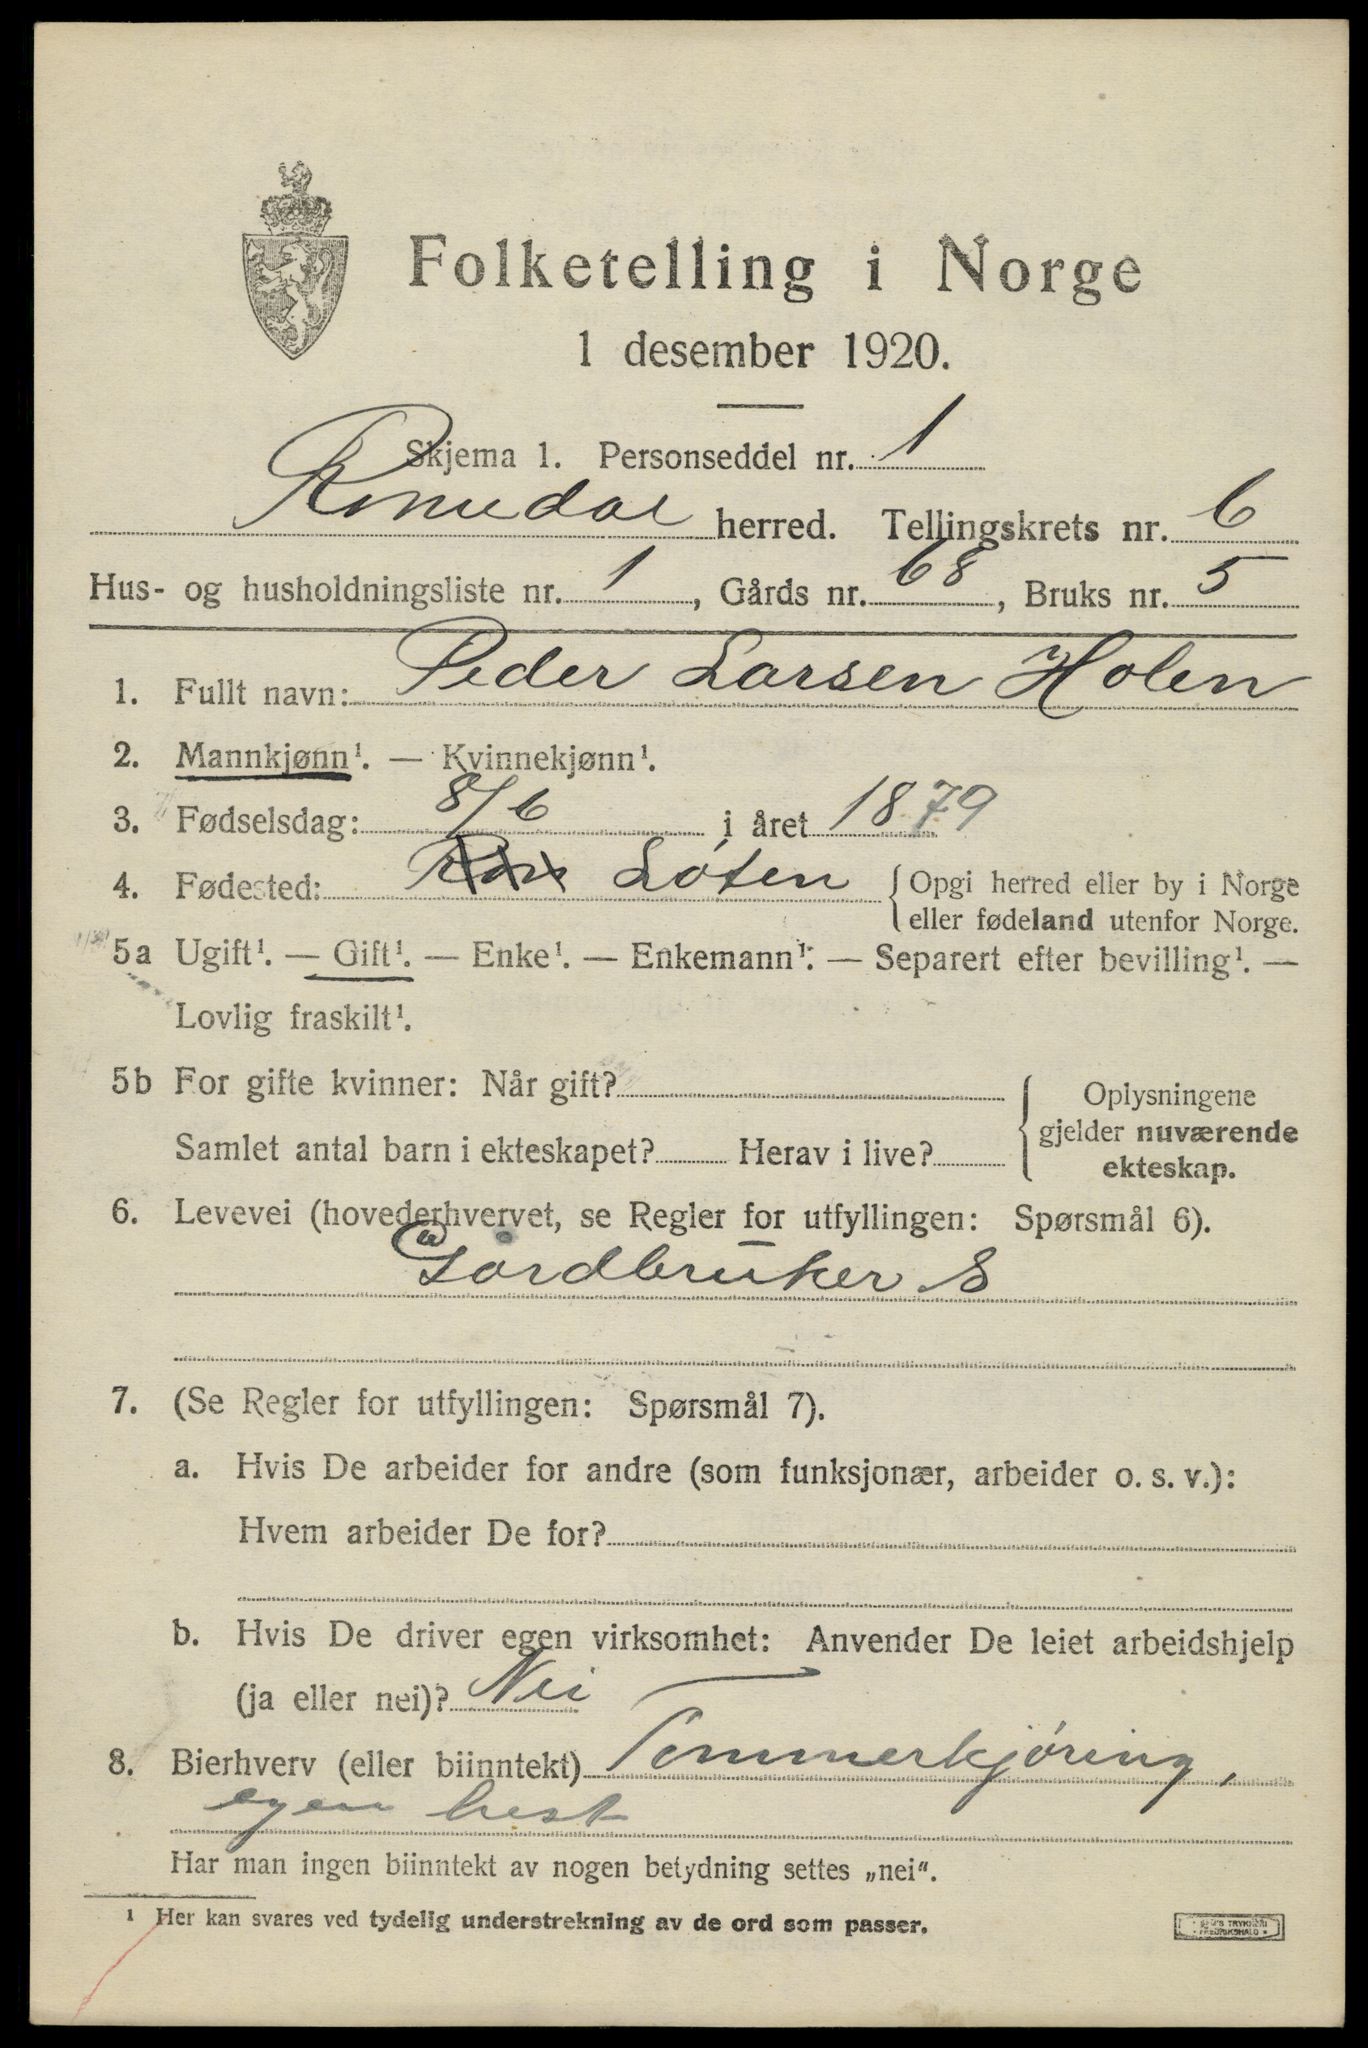 Folketelling i Norge
1 desember 1920.
Skjema 1. Personseddel nr. 1
Romedal herred. Tellingskrets nr. 6
Hus- og husholdningsliste nr. 1, Gårds nr. 68, Bruks nr. 5
1. Fullt navn: Peder Larsen Holen
2. Mannkjønn¹. — Kvinnekjønn¹.
3. Fødselsdag: 8/6 i året 1879
4. Fødested: Løten {Opgi herred eller by i Norge
eller fødeland utenfor Norge.
5a Ugift¹. — Gift¹. — Enke¹. — Enkemann¹. — Separert efter bevilling¹. —
Lovlig fraskilt¹.
5b For gifte kvinner: Når gift?
Samlet antal barn i ekteskapet? Herav i live?
Oplysningene
gjelder nuværende
ekteskap.
6. Levevei (hovederhvervet, se Regler for utfyllingen: Spørsmål 6).
Gårdbruker S
7. (Se Regler for utfyllingen: Spørsmål 7).
a. Hvis De arbeider for andre (som funksjonær, arbeider o. s. v.):
Hvem arbeider De for?
b. Hvis De driver egen virksomhet: Anvender De leiet arbeidshjelp
(ja eller nei)? Nei
8. Bierhverv (eller biinntekt) Tømmerkjøring,
egen hest
Har man ingen biinntekt av nogen betydning settes „nei“.
¹ Her kan svares ved tydelig understrekning av de ord som passer.